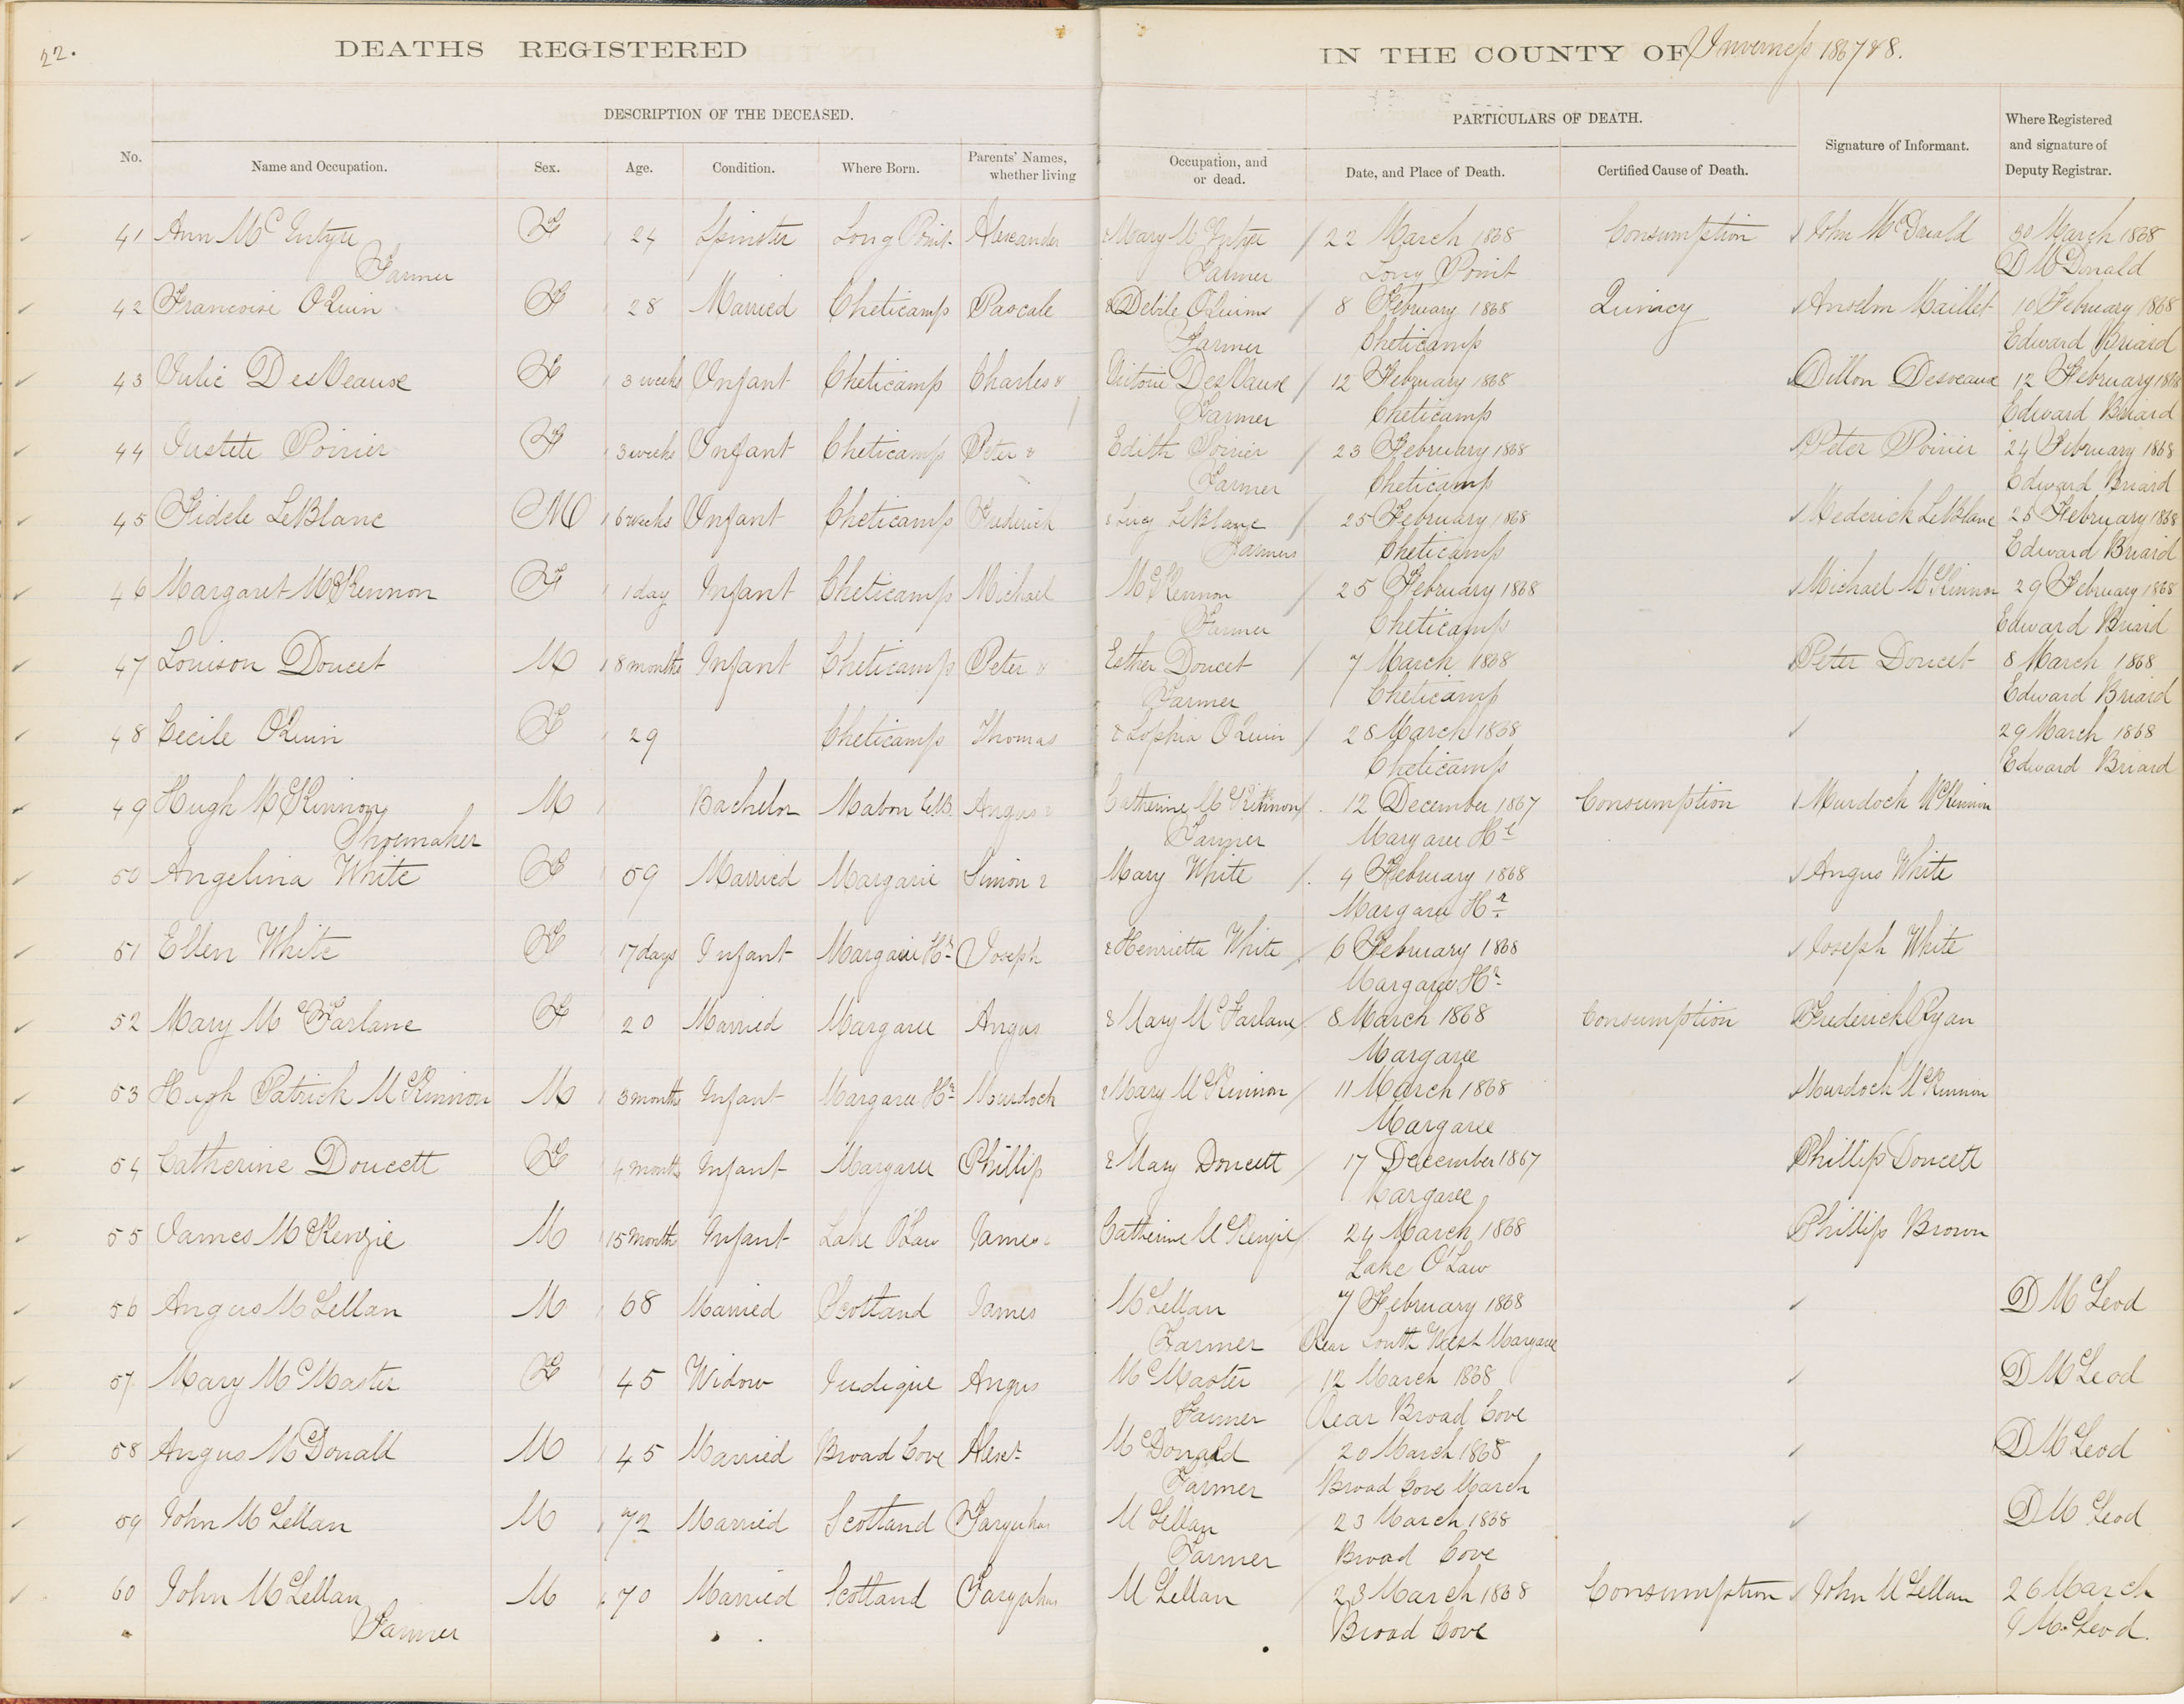 22.
DEATHS REGISTERED IN THE COUNTY OF Inverness 1867 & 8.
DESCRIPTION OF THE DECEASED. PARTICULARS OF DEATH. Signature of Informant. Where Registered and signature of Deputy Registrar.
No. Name and Occupation. Sex. Age. Condition. Where Born. Parents' Names, whether living Occupation, and or dead. Date, and Place of Death. Certified Cause of Death.
41 Ann McIntyre F 24 Spinster Long Point Alexander & Mary McIntyre 22 March 1868 Consumption John McDonald 30 March 1868
Farmer Farmer Long Point D McDonald
42 Francoise OQuin F 28 Married Cheticamp Pascale & OQuinn 8 February 1868 Quincy Anselm Maillet 10 February 1868
Farmer Cheticamp Edward Briard
43 Julie DesVeaux F 3 weeks Infant Cheticamp Charles & Victorie DesVaux 12 February 1868 Desveaux 12 February 1868
Farmer Cheticamp Edward Briard
44 Justete Poirier F 3 weeks Infant Cheticamp Peter & Edith Poirier 23 February 1868 Peter Poirier 24 February 1868
Farmer Cheticamp Edward Briard
45 Fidele LeBlanc M 6 weeks Infant Cheticamp Frederick & Lucy LeBlanc 25 February 1868 Mederick LeBlanc 25 February 1868
Farmers Cheticamp Edward Briard
46 Margaret McKennon F 1 day Infant Cheticamp Michael McKennon 25 February 1868 Michael McKinnon 29 February 1868
Farmer Cheticamp Edward Briard
47 Louison Doucet M 8 months Infant Cheticamp Peter & Esther Doucet 7 March 1868 Peter Doucet 8 March 1868
Farmer Cheticamp Edward Briard
48 Cecile O'Quin F 29 Cheticamp Thomas & Sophia O'Quin 28 March 1868 29 March 1868
Cheticamp Edward Briard
49 Hugh McKinnon M Bachelor Mabou C.B. Angus & Catherine McKinnon 12 December 1867 Consumption Murdock McKinnon
Shoemaker Farmer Margaree Hr
50 Angelina White F 59 Married Margarie Simon & Mary White 4 February 1868 Angus White
Margaree Hr
51 Ellen White F 17 days Infant Margarie Hr Joseph & Henrietta White 6 February 1868 Joseph White
Margaree Hr
52 Mary McFarlane F 20 Married Margaree Angus & Mary McFarlane 8 March 1868 Consumption Frederick Ryan
Margaree
53 Hugh Patrick McKinnon M 3 months Infant Margaree Hr Murdoch & Mary McKinnon 11 March 1868 Murdoch McKinnon
Margaree
54 Catherine Doucett F 4 months Infant Margaree Phillip & Mary Doucett 17 December 1867 Phillip Doucett
Margaree
55 James McKenzie M 15 month Infant Lake O'Law James & Catherine McKenzie 24 March 1868 Phillip Brown
Lake O'Law
56 Angus McLellan M 68 Married Scotland James McLellan 7 February 1868 D McLeod
Farmer Rear South West Margaree
57 Mary McMaster F 45 Widow Judique Angus McMaster 12 March 1868 D McLeod
Farmer Rear Broad Cove
58 Angus McDonald M 45 Married Broad Cove Alexr McDonald 20 March 1868 D McLeod
Farmer Broad Cove March
59 John McLellan M 72 Married Scotland Farquhar McLellan 23 March 1868 D McLeod
Farmer Broad Cove
60 John McLellan M 70 Married Scotland Farquhar McLellan 23 March 1868 Consumption John McLellan 26 March
Farmer Broad Cove McLeod.